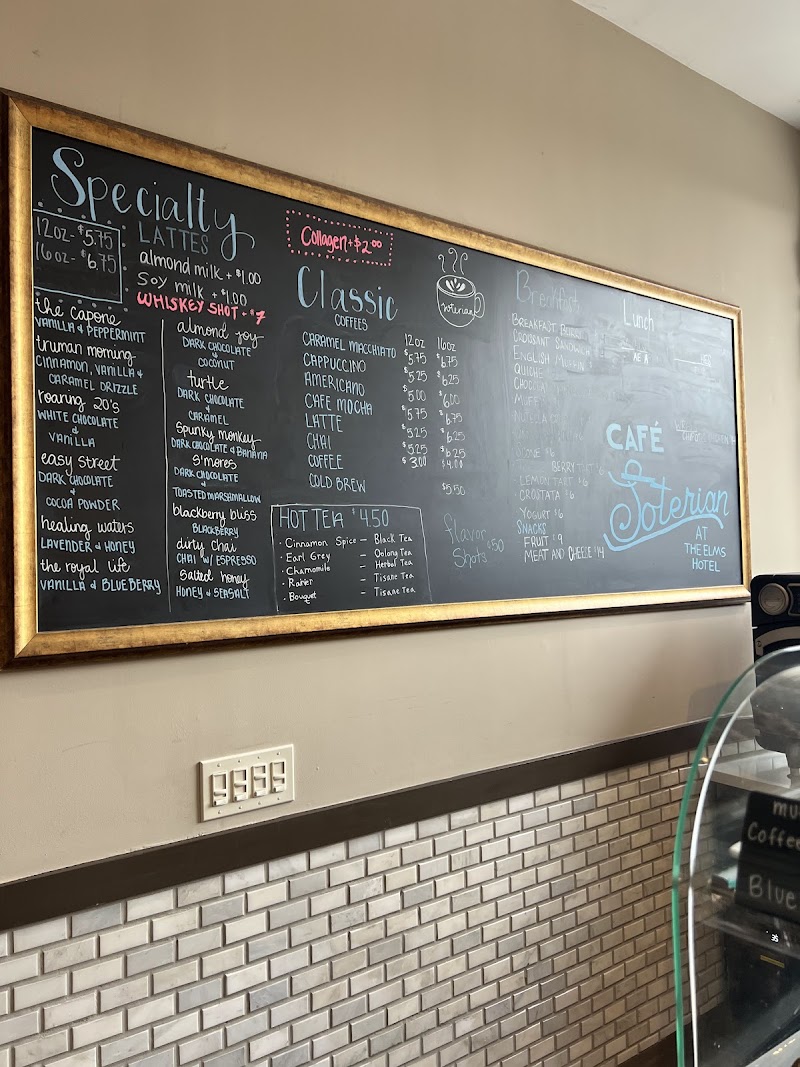 Specialty
LATTES
12oz- $5.75
16oz- $6.75
almond milk + $1.00
Soy milk + $1.00
WHISKEY SHOT + $7
the capone
VANILLA & PEPPERMINT
truman morning
CINNAMON, VANILLA &
CARAMEL DRIZZLE
roaring 20's
WHITE CHOCOLATE
&
VANILLA
easy street
DARK CHOCOLATE
&
COCOA POWDER
healing waters
LAVENDER & HONEY
the royal life
VANILLA & BLUEBERRY
almond joy
DARK CHOCOLATE
&
COCONUT
turtle
DARK CHOCOLATE
&
CARAMEL
spunky monkey
DARK CHOCOLATE & BANANA
s'mores
DARK CHOCOLATE
&
TOASTED MARSHMALLOW
blackberry bliss
BLACKBERRY
dirty chai
CHAI W/ ESPRESSO
salted honey
HONEY & SEASALT
Collagen + $2.00
Classic
COFFEES
Soterian
12oz 16oz
CARAMEL MACCHIATO $5.75 $6.75
CAPPUCCINO $5.25 $6.25
AMERICANO $5.00 $6.00
CAFE MOCHA $5.75 $6.75
LATTE $5.25 $6.25
CHAI $5.25 $6.25
COFFEE $3.00 $4.00
COLD BREW $5.50
HOT TEA $4.50
· Cinnamon Spice – Black Tea
· Earl Grey – Oolong Tea
· Chamomile – Herbal Tea
· Rainier – Tisane Tea
· Bouquet – Tisane Tea
flavor
Shots $.50
Breakfast
CROISSANT SANDWICH
ENGLISH MUFFIN
QUICHE
BERRY TART $6
LEMON TART $6
CROSTATA $6
YOGURT $6
SNACKS
FRUIT $9
MEAT AND CHEESE $14
Lunch
CAFÉ
Soterian
AT
THE ELMS
HOTEL
Coffee
Blue